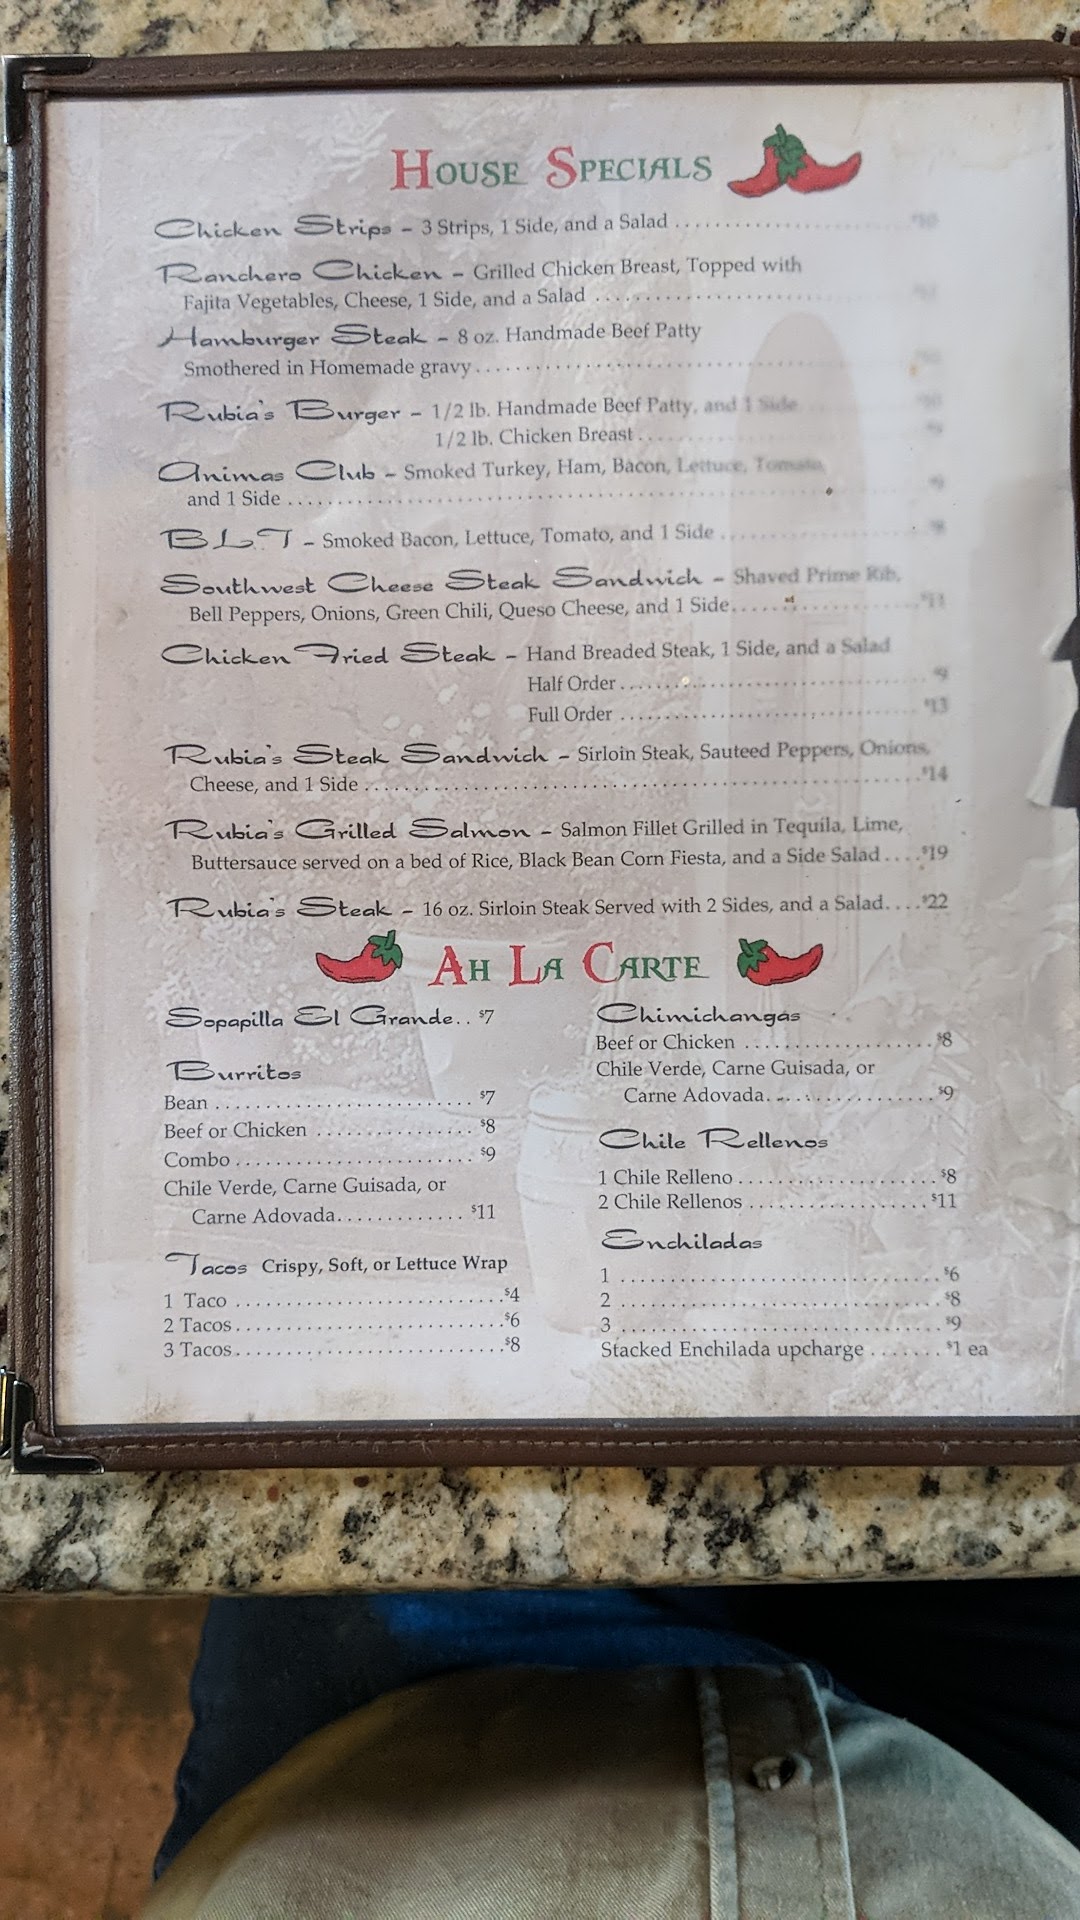 House Specials
Chicken Strips – 3 Strips, 1 Side, and a Salad ............................ $10
Ranchero Chicken – Grilled Chicken Breast, Topped with
Fajita Vegetables, Cheese, 1 Side, and a Salad ....................................
Hamburger Steak – 8 oz. Handmade Beef Patty
Smothered in Homemade gravy....................................................
Rubia's Burger – 1/2 lb. Handmade Beef Patty, and 1 Side
1/2 lb. Chicken Breast ................................
Animas Club – Smoked Turkey, Ham, Bacon, Lettuce, Tomato,
and 1 Side ..................................................................... $9
BLT – Smoked Bacon, Lettuce, Tomato, and 1 Side ....................... $8
Southwest Cheese Steak Sandwich – Shaved Prime Rib,
Bell Peppers, Onions, Green Chili, Queso Cheese, and 1 Side....................... $11
Chicken Fried Steak – Hand Breaded Steak, 1 Side, and a Salad
Half Order ....................................... $9
Full Order ...................................... $13
Rubia's Steak Sandwich – Sirloin Steak, Sauteed Peppers, Onions,
Cheese, and 1 Side .............................................................. $14
Rubia's Grilled Salmon – Salmon Fillet Grilled in Tequila, Lime,
Buttersauce served on a bed of Rice, Black Bean Corn Fiesta, and a Side Salad .... $19
Rubia's Steak – 16 oz. Sirloin Steak Served with 2 Sides, and a Salad.... $22
Ah La Carte
Sopapilla El Grande.. $7
Burritos
Bean ........................... $7
Beef or Chicken ................. $8
Combo ......................... $9
Chile Verde, Carne Guisada, or
Carne Adovada.............. $11
Tacos Crispy, Soft, or Lettuce Wrap
1 Taco ............................ $4
2 Tacos............................ $6
3 Tacos............................ $8
Chimichangas
Beef or Chicken .................... $8
Chile Verde, Carne Guisada, or
Carne Adovada.................. $9
Chile Rellenos
1 Chile Relleno ..................... $8
2 Chile Rellenos ................... $11
Enchiladas
1 .................................. $6
2 .................................. $8
3 .................................. $9
Stacked Enchilada upcharge ....... $1 ea